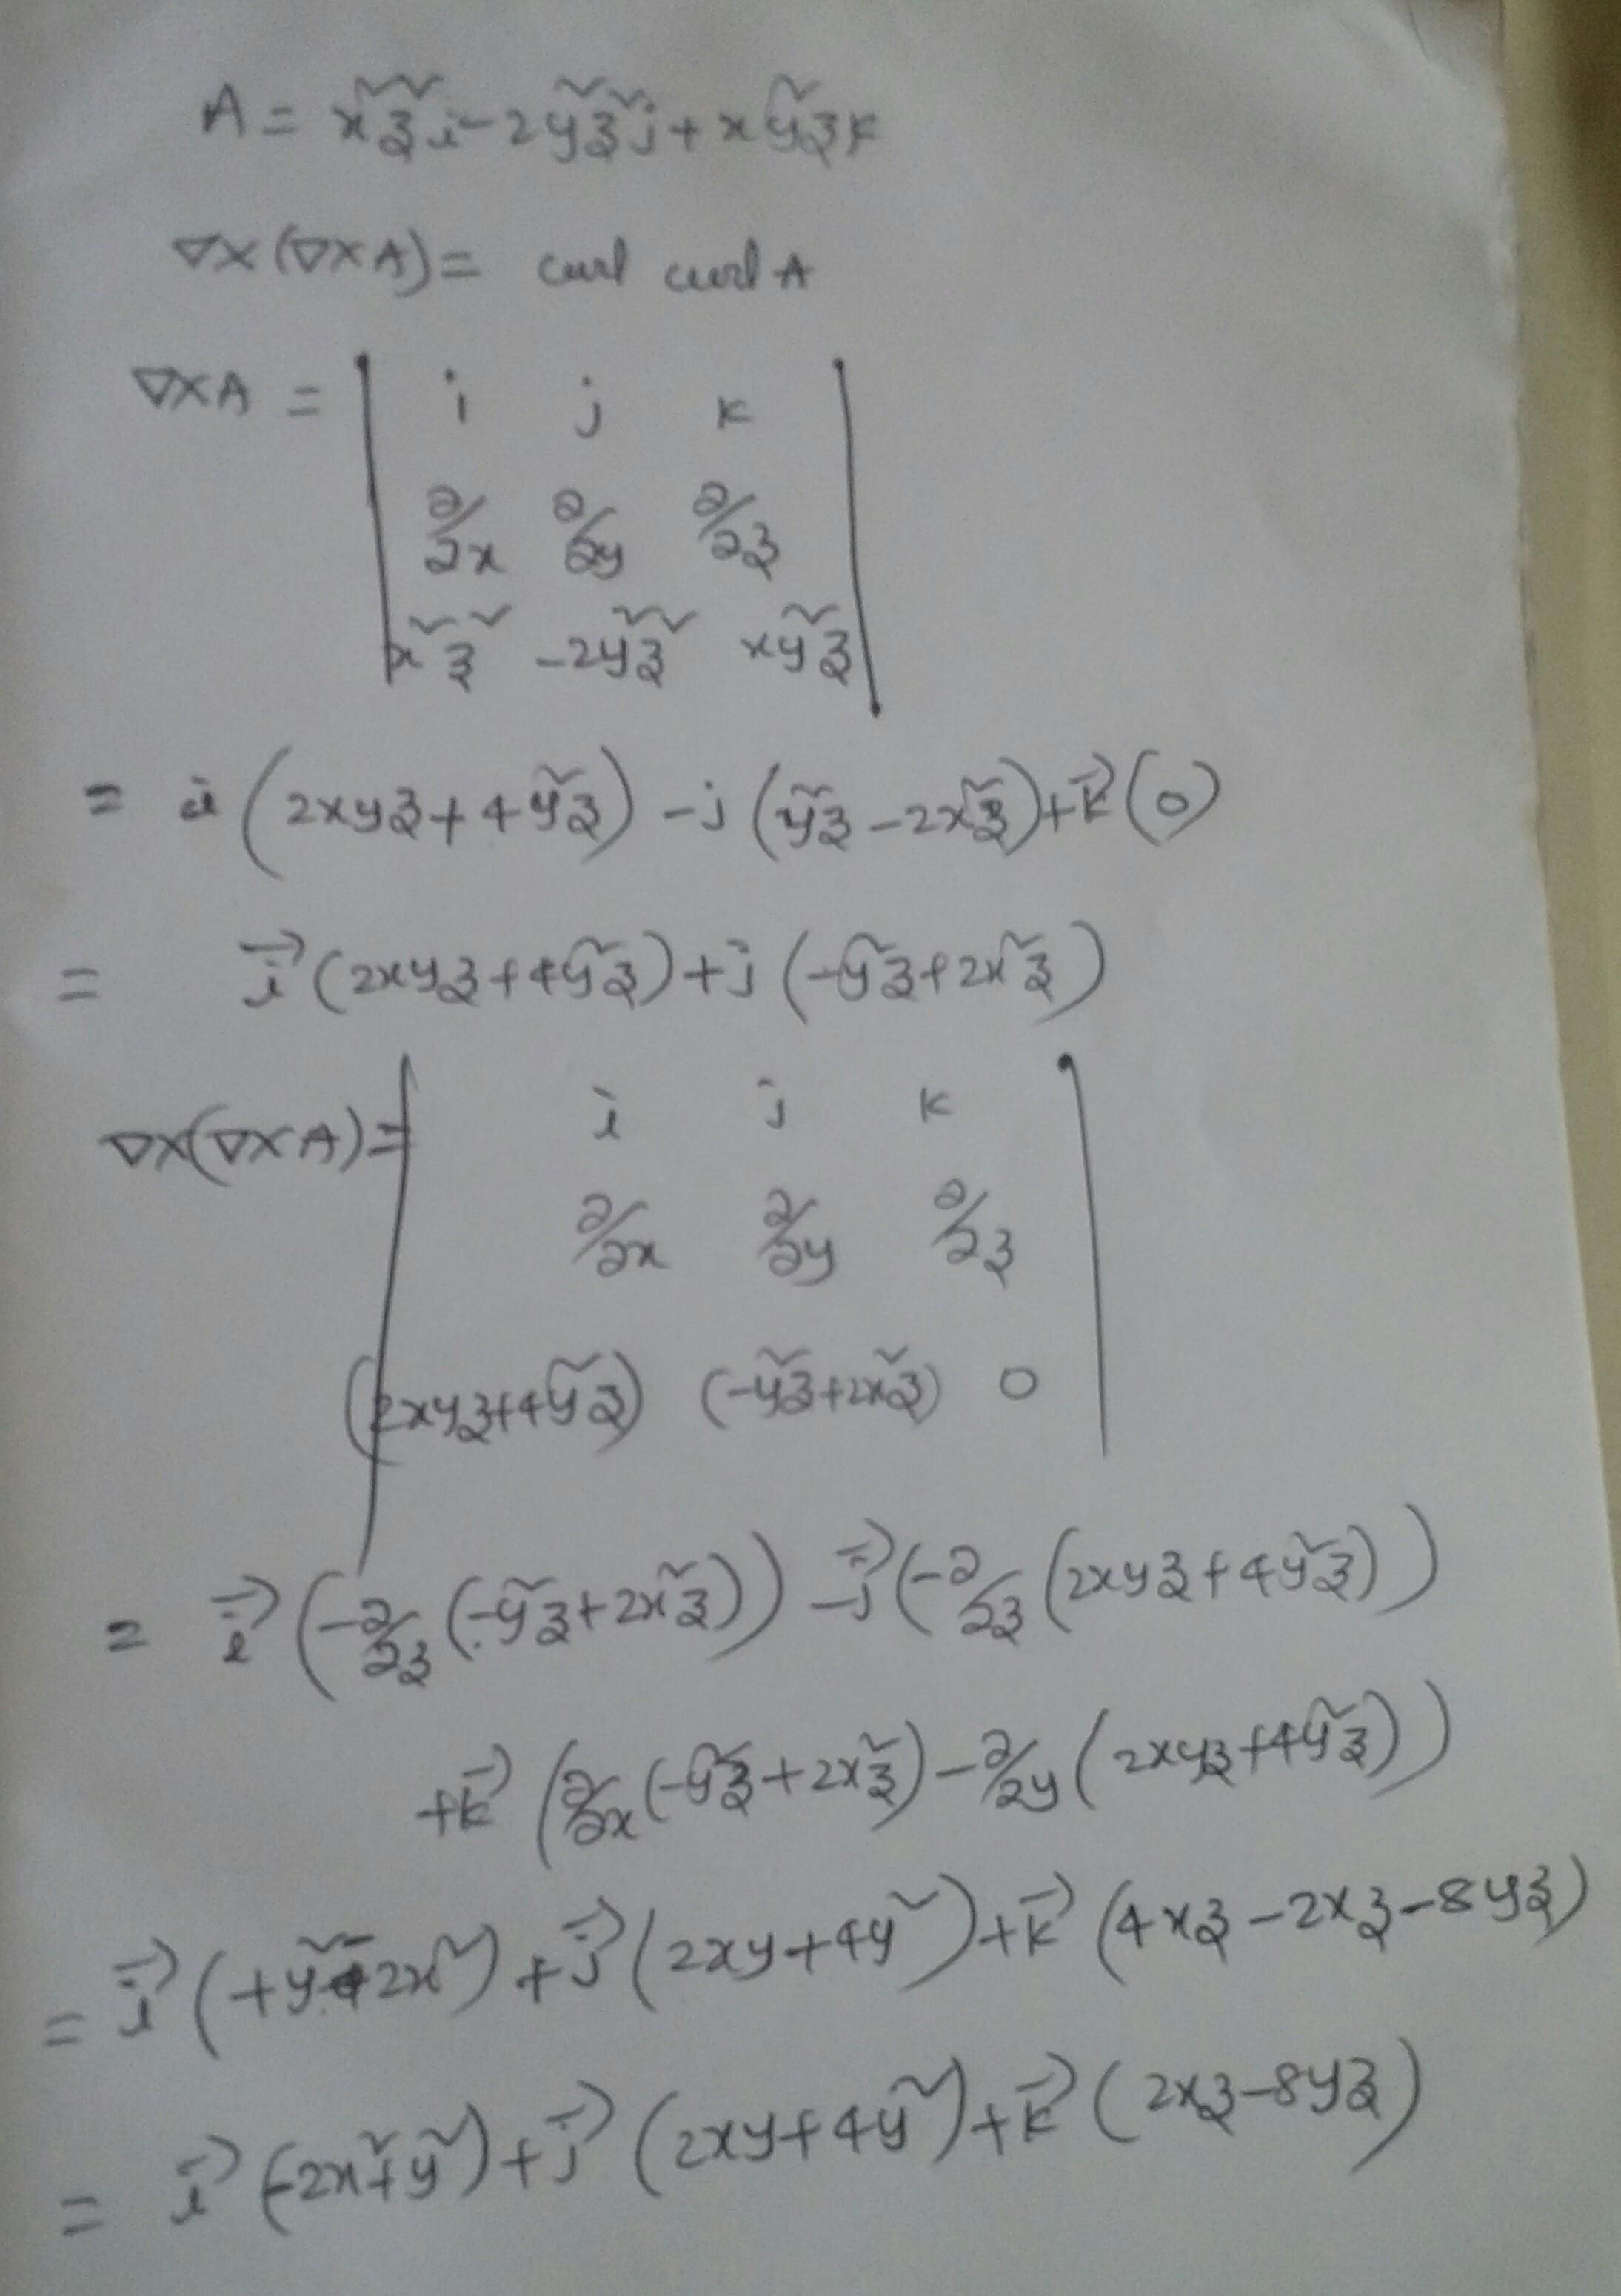 A = x²z²i - 2y²z²j + xy²zk
∇×(∇×A) = curl curl A
∇×A = | i j k |
∂/∂x ∂/∂y ∂/∂z
x²z² -2y²z² xy²z
= i (2xyz + 4y²z) - j (y²z - 2x²z) + k⃗ (0)
= i⃗ (2xyz + 4y²z) + j (-y²z + 2x²z)
∇×(∇×A) = | i j k |
∂/∂x ∂/∂y ∂/∂z
(2xyz+4y²z) (-y²z+2x²z) 0
= i⃗ (-∂/∂z (-y²z + 2x²z)) - j⃗ (-∂/∂z (2xyz + 4y²z))
+ k⃗ (∂/∂x (-y²z + 2x²z) - ∂/∂y (2xyz + 4y²z))
= i⃗ (+y² - 2x²) + j⃗ (2xy + 4y²) + k⃗ (4xz - 2xz - 8yz)
= i⃗ (-2x² + y²) + j⃗ (2xy + 4y²) + k⃗ (2xz - 8yz)